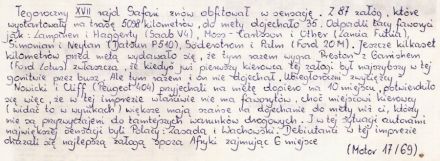 Tegoroczny XVII rajd Safari znów obfitował w sensacje. Z 87 załóg, które
wystartowały na trasę 5098 kilometrów, do mety dojechało 35. Odpadli tacy faworyci
jak: Lampinen i Haggerty (Saab V4), Moss-Carlsson i Other (Lancia Fulvia),
Simonian i Neylan (Datsun P510), Söderstrom i Palm (Ford 20M). Jeszcze kilkaset
kilometrów przed metą wydawało się, że tym razem wygra Preston Gamishem
Ford (20M) zwłaszcza, że kiedyś już pierwszy kierowca tej załogi był najszybszy w tej
gonitwie przez busz. Ale tym razem i on nie dojechał. Ubiegłoroczni zwycięzcy
Nowicki i Cliff (Peugeot 404) przyjechali na metę dopiero na 10 miejscu, potwierdziło
się więc, że w tej imprezie właściwie nie ma faworytów, choć miejscowi kierowcy
(widać to w wynikach) większe mają szanse na dojechanie do mety niż ci, którzy
nie są przyzwyczajeni do tamtejszych warunków drogowych. I w tej sytuacji autorami
największej sensacji byli Polacy: Zasada i Wachowski. Debiutanci w tej imprezie
okazali się najlepszą załogą spoza Afryki zajmując 6 miejsce
(Motor 17/69).